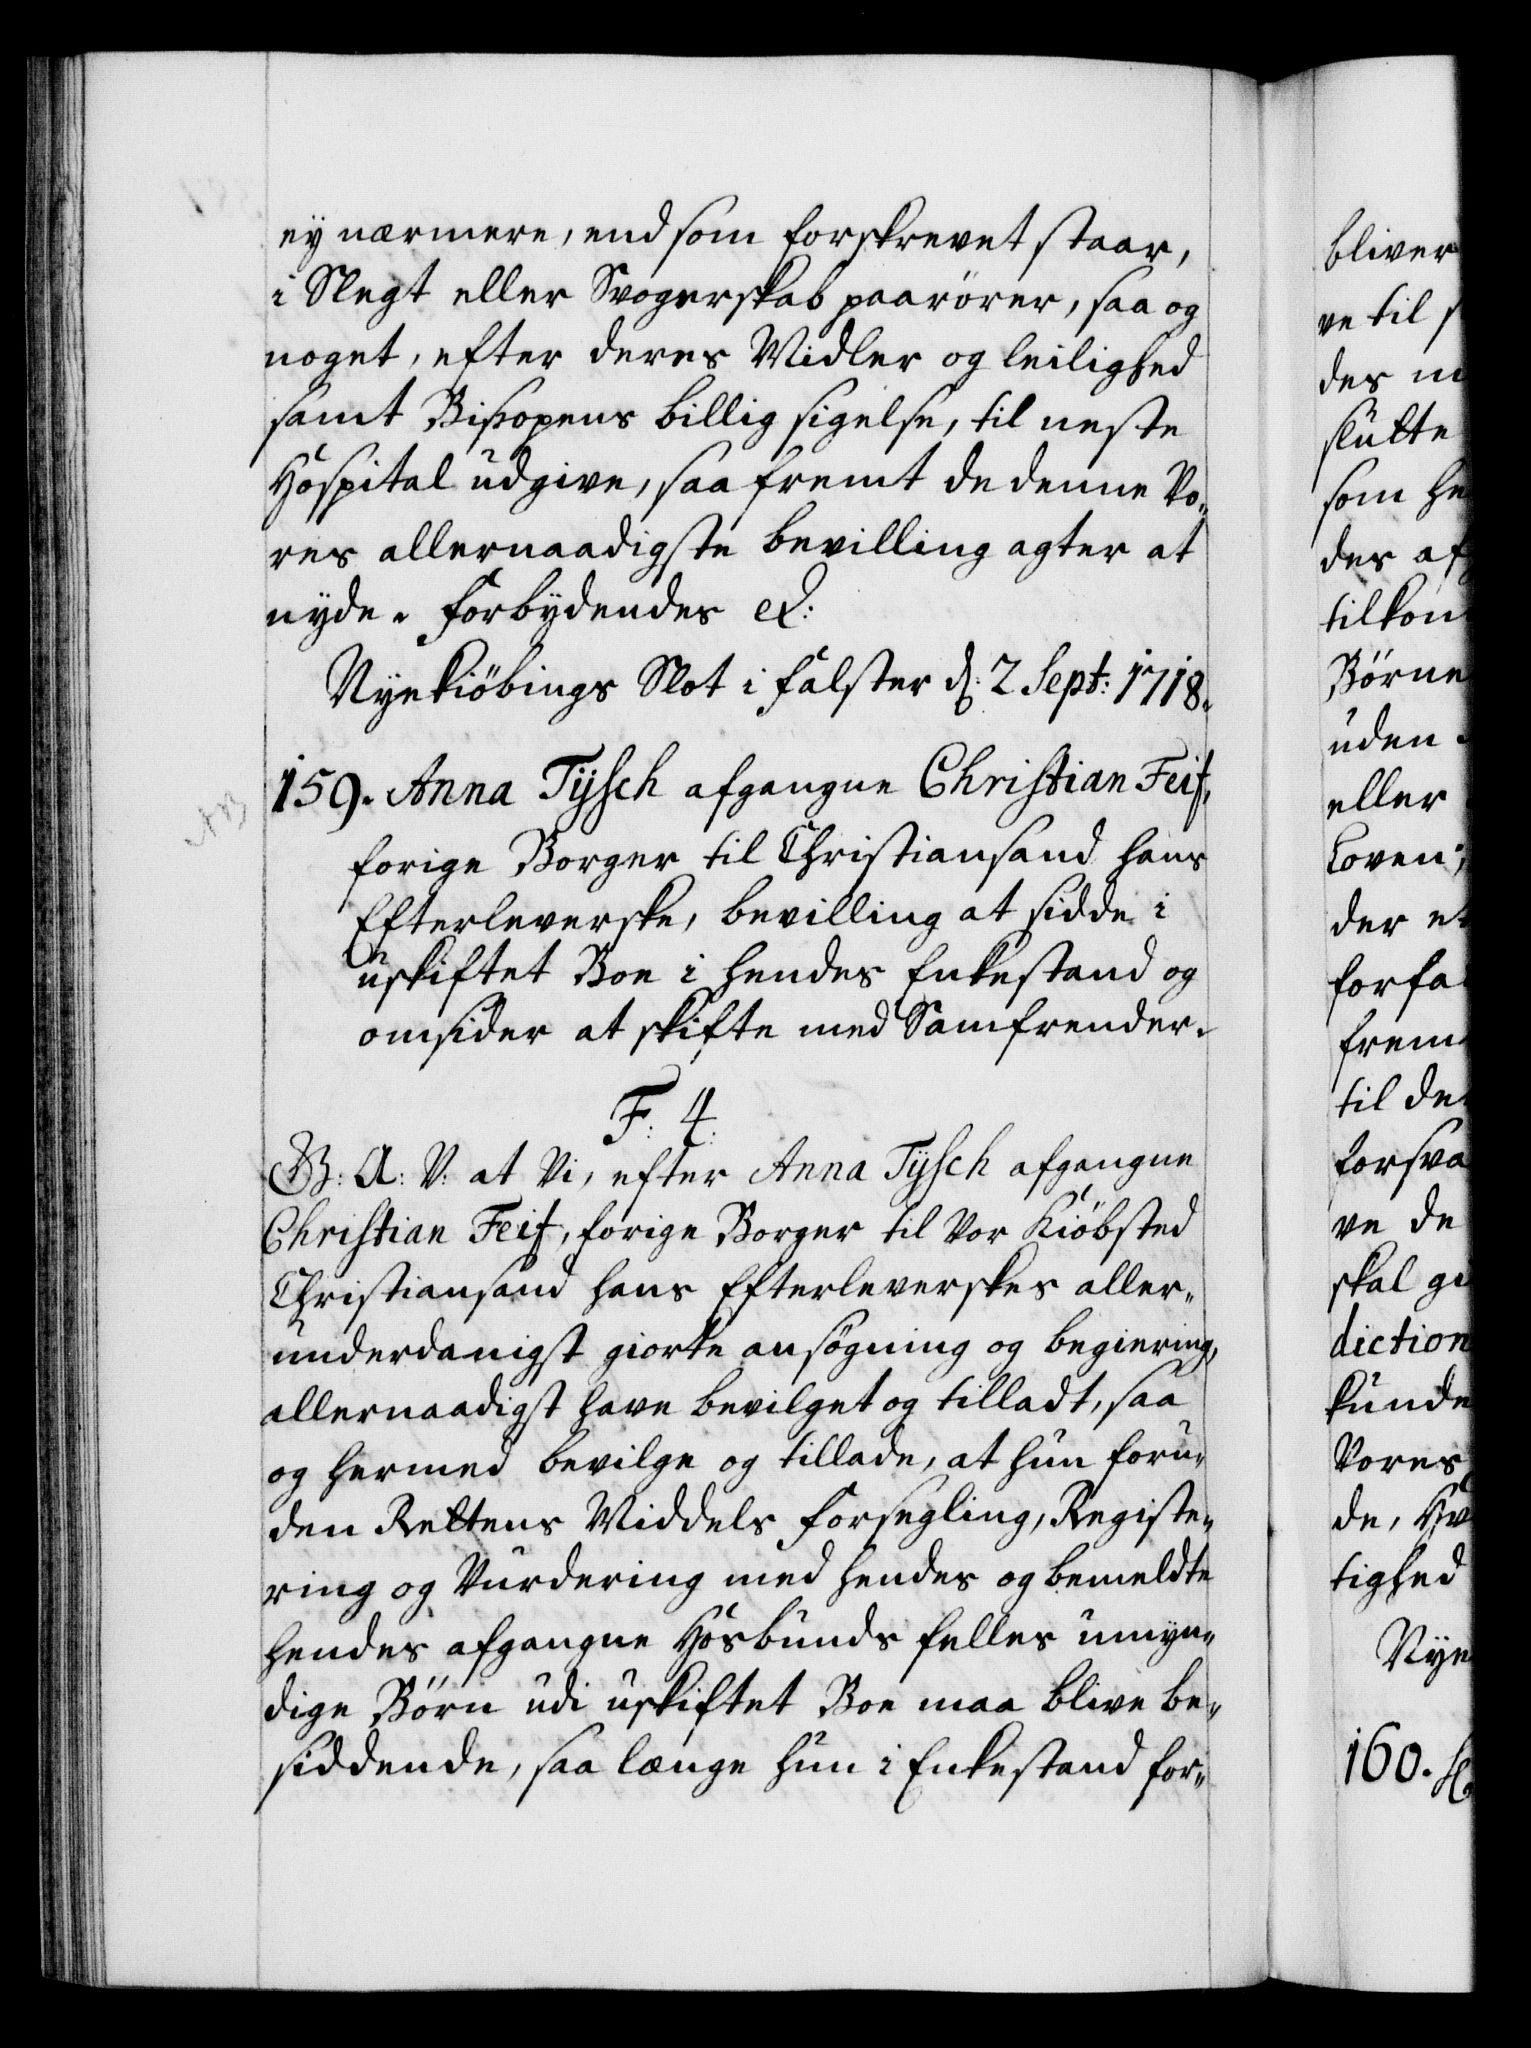 ey nærmere, end som forskrevet staar,
i Slegt eller Svogerskab paarører, saa og
noget, efter deres Midler og leilighed
samt Bispopens billig sigelse, til neste
Hospital udgive, saa fremt de denne Vo„
res allernaadigste bevilling agter at
nyde. Forbydendes &:
Nyekiöbings Slot i Falster d: 2 Sept: 1718.
159. Anna Tÿsch afgangne Christian Feif,
forige Borger til Christiansand hans
Efterleverske, bevilling at sidde i
uskiftet Boe i hendes Enkestand og
omsider at skifte med Samfrender.
F: 4:
G: A: V: at Vi, efter Anna Tÿsch afgangne
Christian Feif, forige Borger til Vor Kiöbsted
Christiansand hans Efterleverskes aller„
underdanigst giorte ansøgning og begiering,
allernaadigst have bevilget og tilladt, saa
og hermed bevilge og tillade, at hun foru„
den Rettens Middels Forsegling, Registe„
ring og Vurdering med hendes og bemeldte
hendes afgangne Hosbunds felles umyn„
dige Börn udi uskiftet Boe maa blive be„
siddende, saa længe hun i Enkestand for„
bliver
ve til
des
slutte
som
des
tilkom
Börne
uden
eller
Loven;
der
forfa
frem
til de
forsva
ve de
skal
diction
kunde
Vores
de,
tighed
Nye
160.